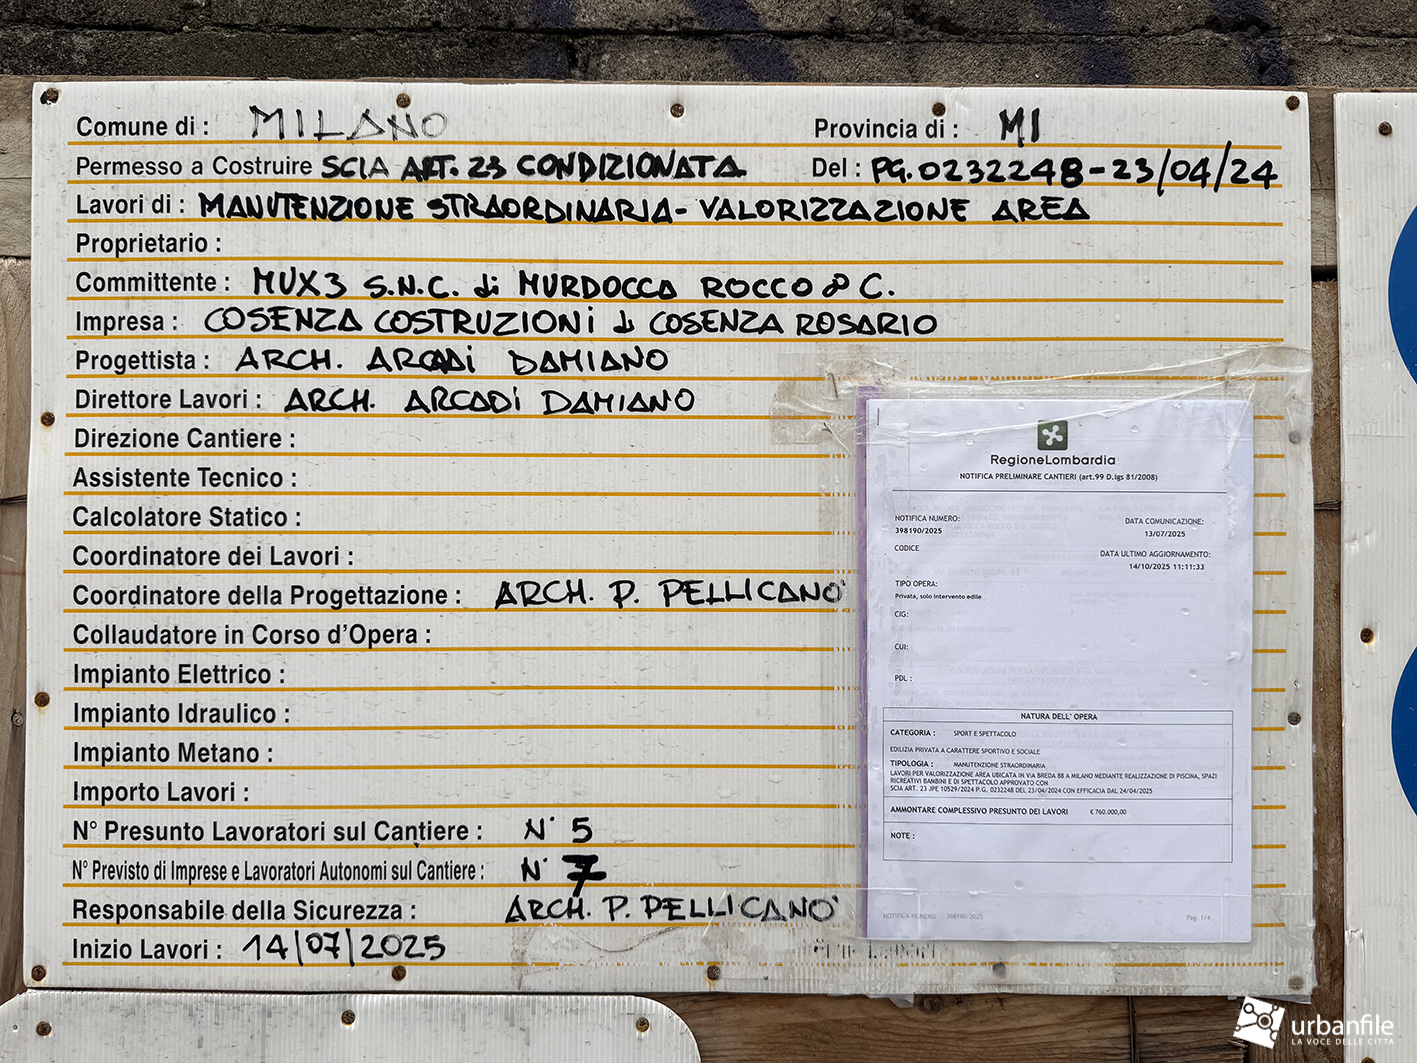 Comune di : MILANO Provincia di : MI
Permesso a Costruire SCIA ART. 23 CONDIZIONATA Del : PG. 0232248-23/04/24
Lavori di : MANUTENZIONE STRAORDINARIA- VALORIZZAZIONE AREA
Proprietario :
Committente : MUX3 S.N.C. di MURDOCCA ROCCO & C.
Impresa : COSENZA COSTRUZIONI di COSENZA ROSARIO
Progettista : ARCH. ARCADI DAMIANO
Direttore Lavori : ARCH. ARCADI DAMIANO
Direzione Cantiere :
Assistente Tecnico :
Calcolatore Statico :
Coordinatore dei Lavori :
Coordinatore della Progettazione : ARCH. P. PELLICANO'
Collaudatore in Corso d'Opera :
Impianto Elettrico :
Impianto Idraulico :
Impianto Metano :
Importo Lavori :
N° Presunto Lavoratori sul Cantiere : N° 5
N° Previsto di Imprese e Lavoratori Autonomi sul Cantiere : N° 7
Responsabile della Sicurezza : ARCH. P. PELLICANO'
Inizio Lavori : 14/07/2025
RegioneLombardia
NOTIFICA PRELIMINARE CANTIERI (art.99 D.lgs 81/2008)
NOTIFICA NUMERO: DATA COMUNICAZIONE:
398190/2025 13/07/2025
CODICE DATA ULTIMO AGGIORNAMENTO:
14/10/2025 11:11:33
TIPO OPERA:
Privata, solo intervento edile
CIG:
CUI:
PDL :
NATURA DELL' OPERA
CATEGORIA : SPORT E SPETTACOLO
EDILIZIA PRIVATA A CARATTERE SPORTIVO E SOCIALE
TIPOLOGIA : MANUTENZIONE STRAORDINARIA
LAVORI PER VALORIZZAZIONE AREA UBICATA IN VIA BREDA 88 A MILANO MEDIANTE REALIZZAZIONE DI PISCINA, SPAZI
RICREATIVI BAMBINI E DI SPETTACOLO APPROVATO CON
SCIA ART. 23 JPE 10529/2024 P.G. 0232248 DEL 23/04/2024 CON EFFICACIA DAL 24/04/2025
AMMONTARE COMPLESSIVO PRESUNTO DEI LAVORI € 760.000,00
NOTE :
NOTIFICA NUMERO 398190/2025 Pag. 1/4
urbanfile
LA VOCE DELLE CITTÀ